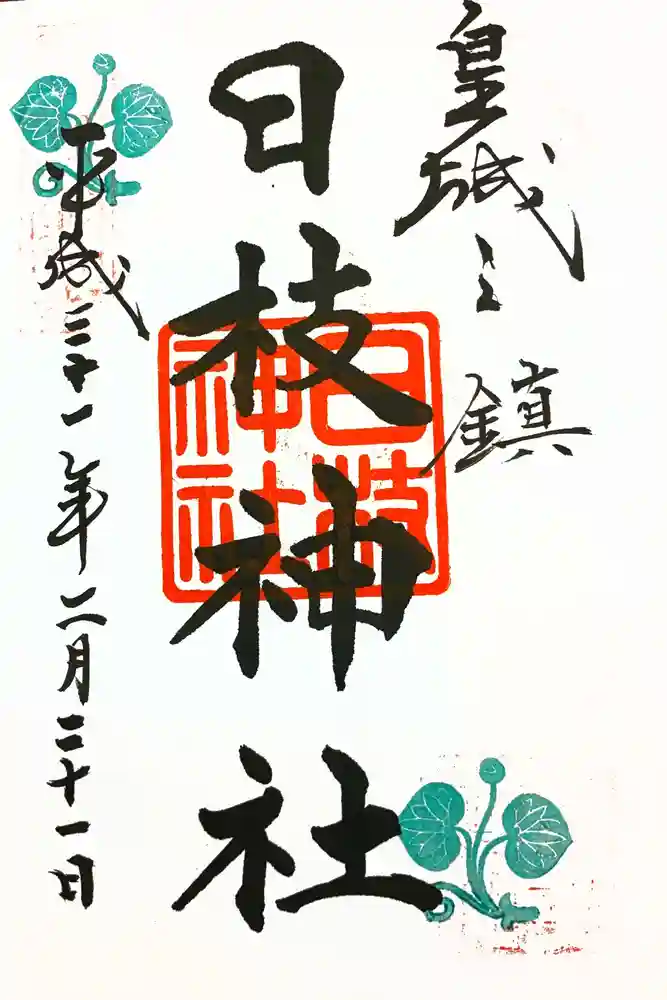 皇城之鎮
日枝神社
日枝
神社
平成三十一年二月二十一日